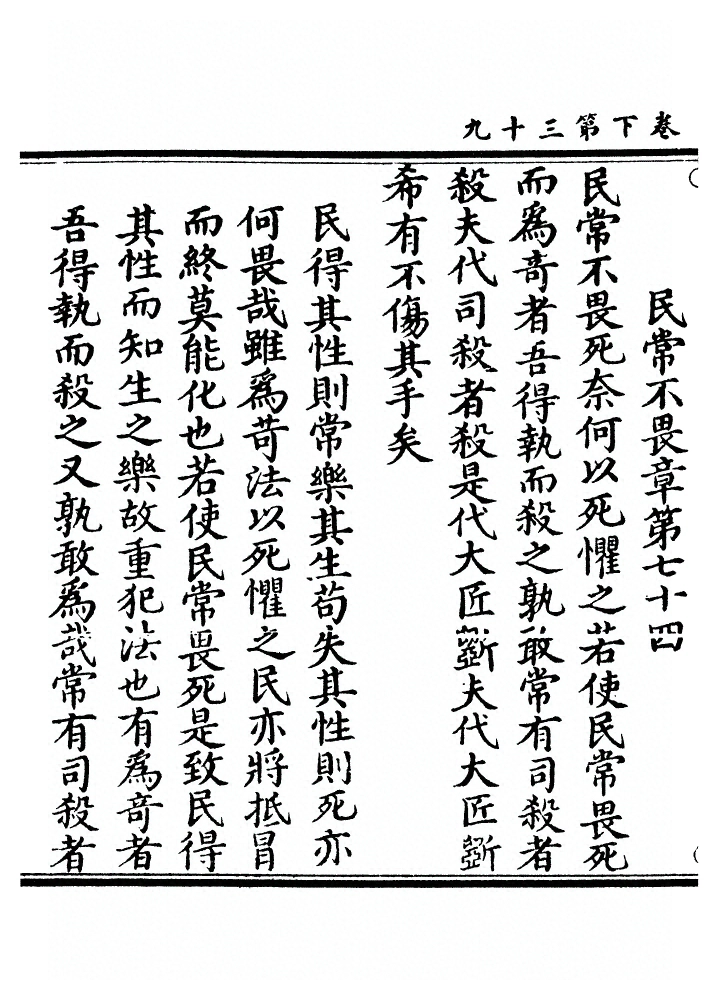 卷下第三十九
民常不畏章第七十四
民常不畏死奈何以死懼之若使民常畏死
而爲竒者吾得執而殺之孰敢常有司殺者
殺夫代司殺者殺是代大匠斵夫代大匠斵
希有不傷其手矣
民得其性則常樂其生苟失其性則死亦
何畏哉雖爲苛法以死懼之民亦將抵冒
而終莫能化也若使民常畏死是致民得
其性而知生之樂故重犯法也有爲竒者
吾得執而殺之又孰敢爲哉常有司殺者